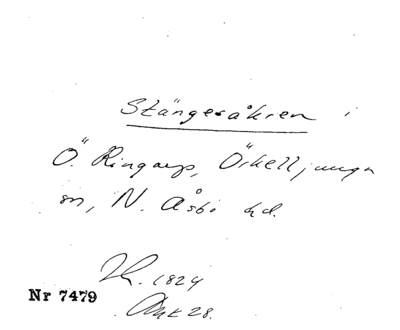 Stängesåkren i
Ö. Ringarp, Örkelljunga
sn, N. Åsbo hd.
1824
Nr 7479
28.